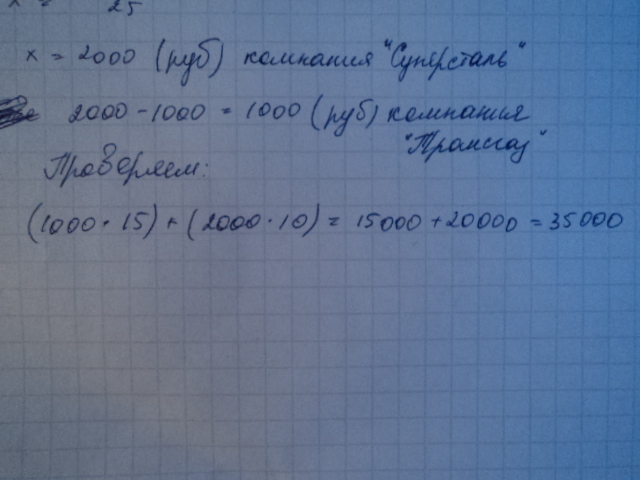 x = 25
x = 2000 (руб) компания "Суперсталь"
2000 - 1000 = 1000 (руб) компания
"Трансгаз"
Проверяем:
(1000 · 15) + (2000 · 10) = 15000 + 20000 = 35000